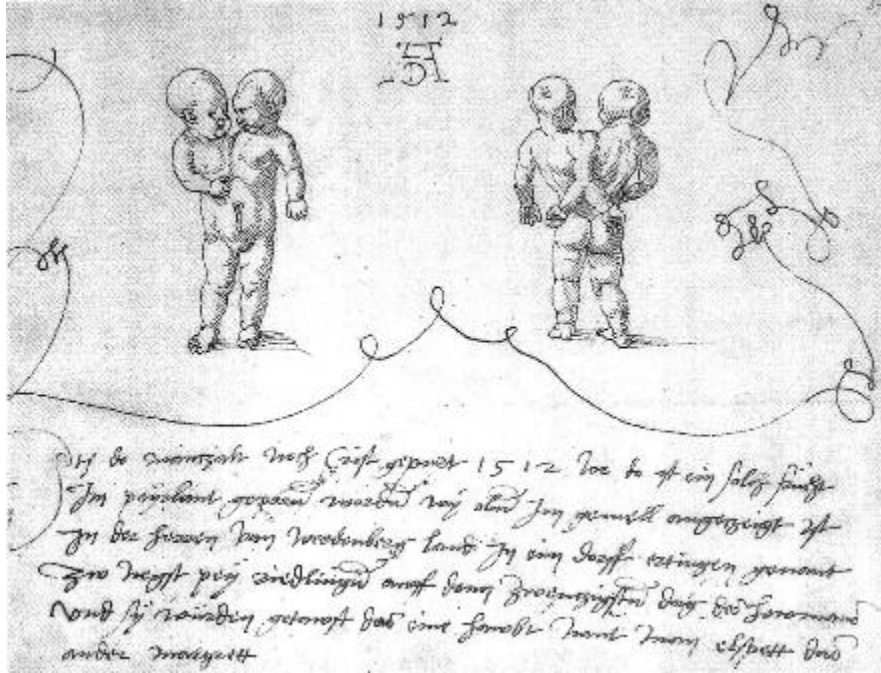 1512
AD
do man zalt noch Crist gepurt 1512 Jor do ist ein solche frucht
Im peyrlant geporen worden wy oben Im gemell angezeigt ist
In der herren von werdenberg land In ein dorff ertingen genant
zwo negst pey riedlingen auff dem zwenzigsten dag des
vnd sy wurden getaufft das eine haubt nant man elspett das
ander margrett